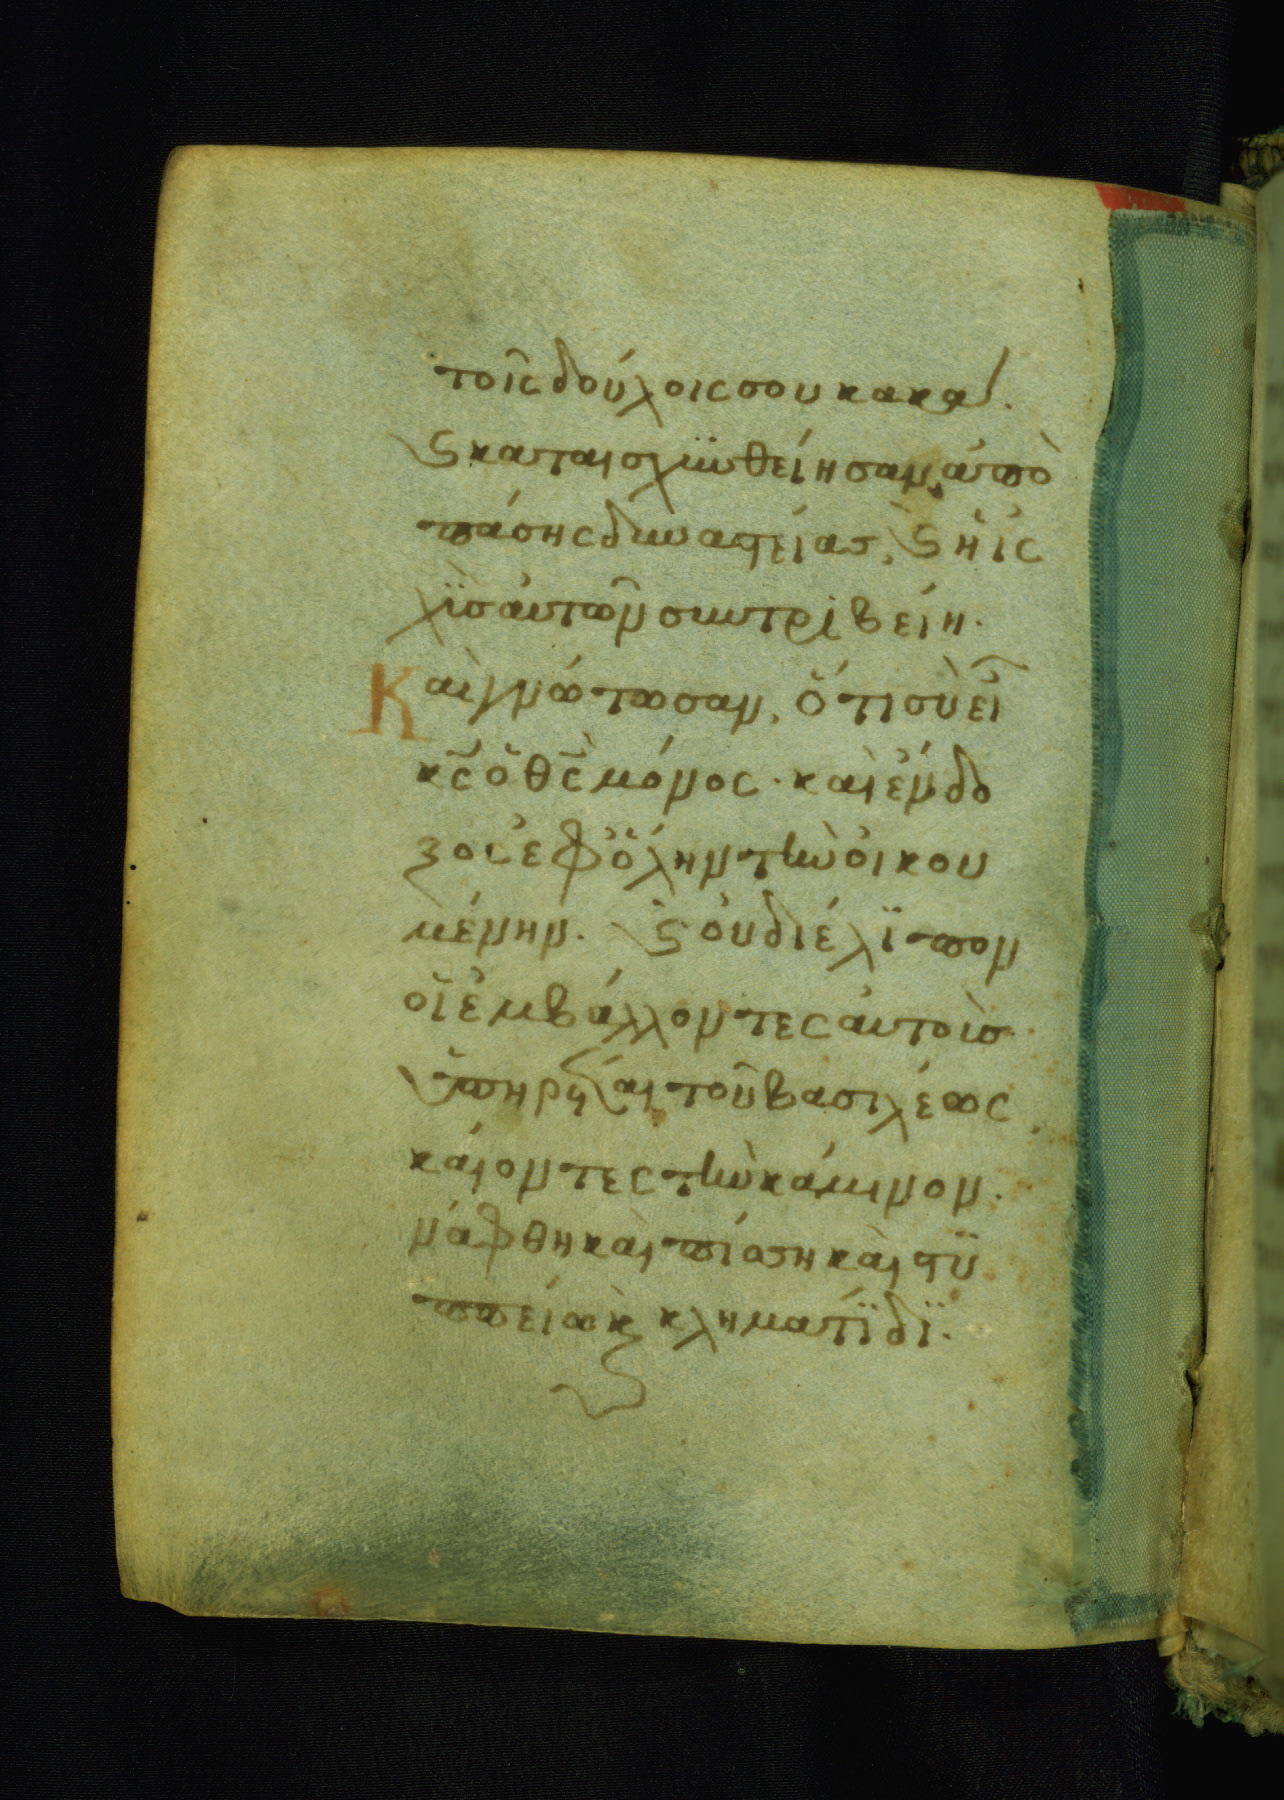 τοῖς δούλοις σου κακά.
ϛ καταισχϋνθείησαν ἀπὸ
πάσης δυναστείας, ϛ ἡ ἰς
χῒσ ἀυτῶν συντριβείη.
Καὶ γνώτωσαν, ὅτι σὺ εἶ
κ̅ς̅ ὁ θ̅ς̅ μόνος· καὶ ἔνδο
ξος ἐφ ὅλην τὴν ὀικου
μένην. ϛ ὀυ διέλϊπον
οἱ ἐμβάλλοντες ἀυτοὺσ
ὑπηρέται τοῦ βασιλέως
κάιοντες τὴν κάμινον.
νάφθη καὶ πίσση καὶ στϋ
πείω κὰ κλημαΤΐδϊ.